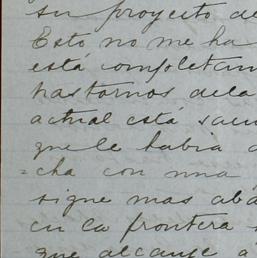 su proyecto de
Esto no me ha
está completam
trastornos de la
actual está
que le habia
=cha con una
sigue mas aba
en la frontera
que alcance a